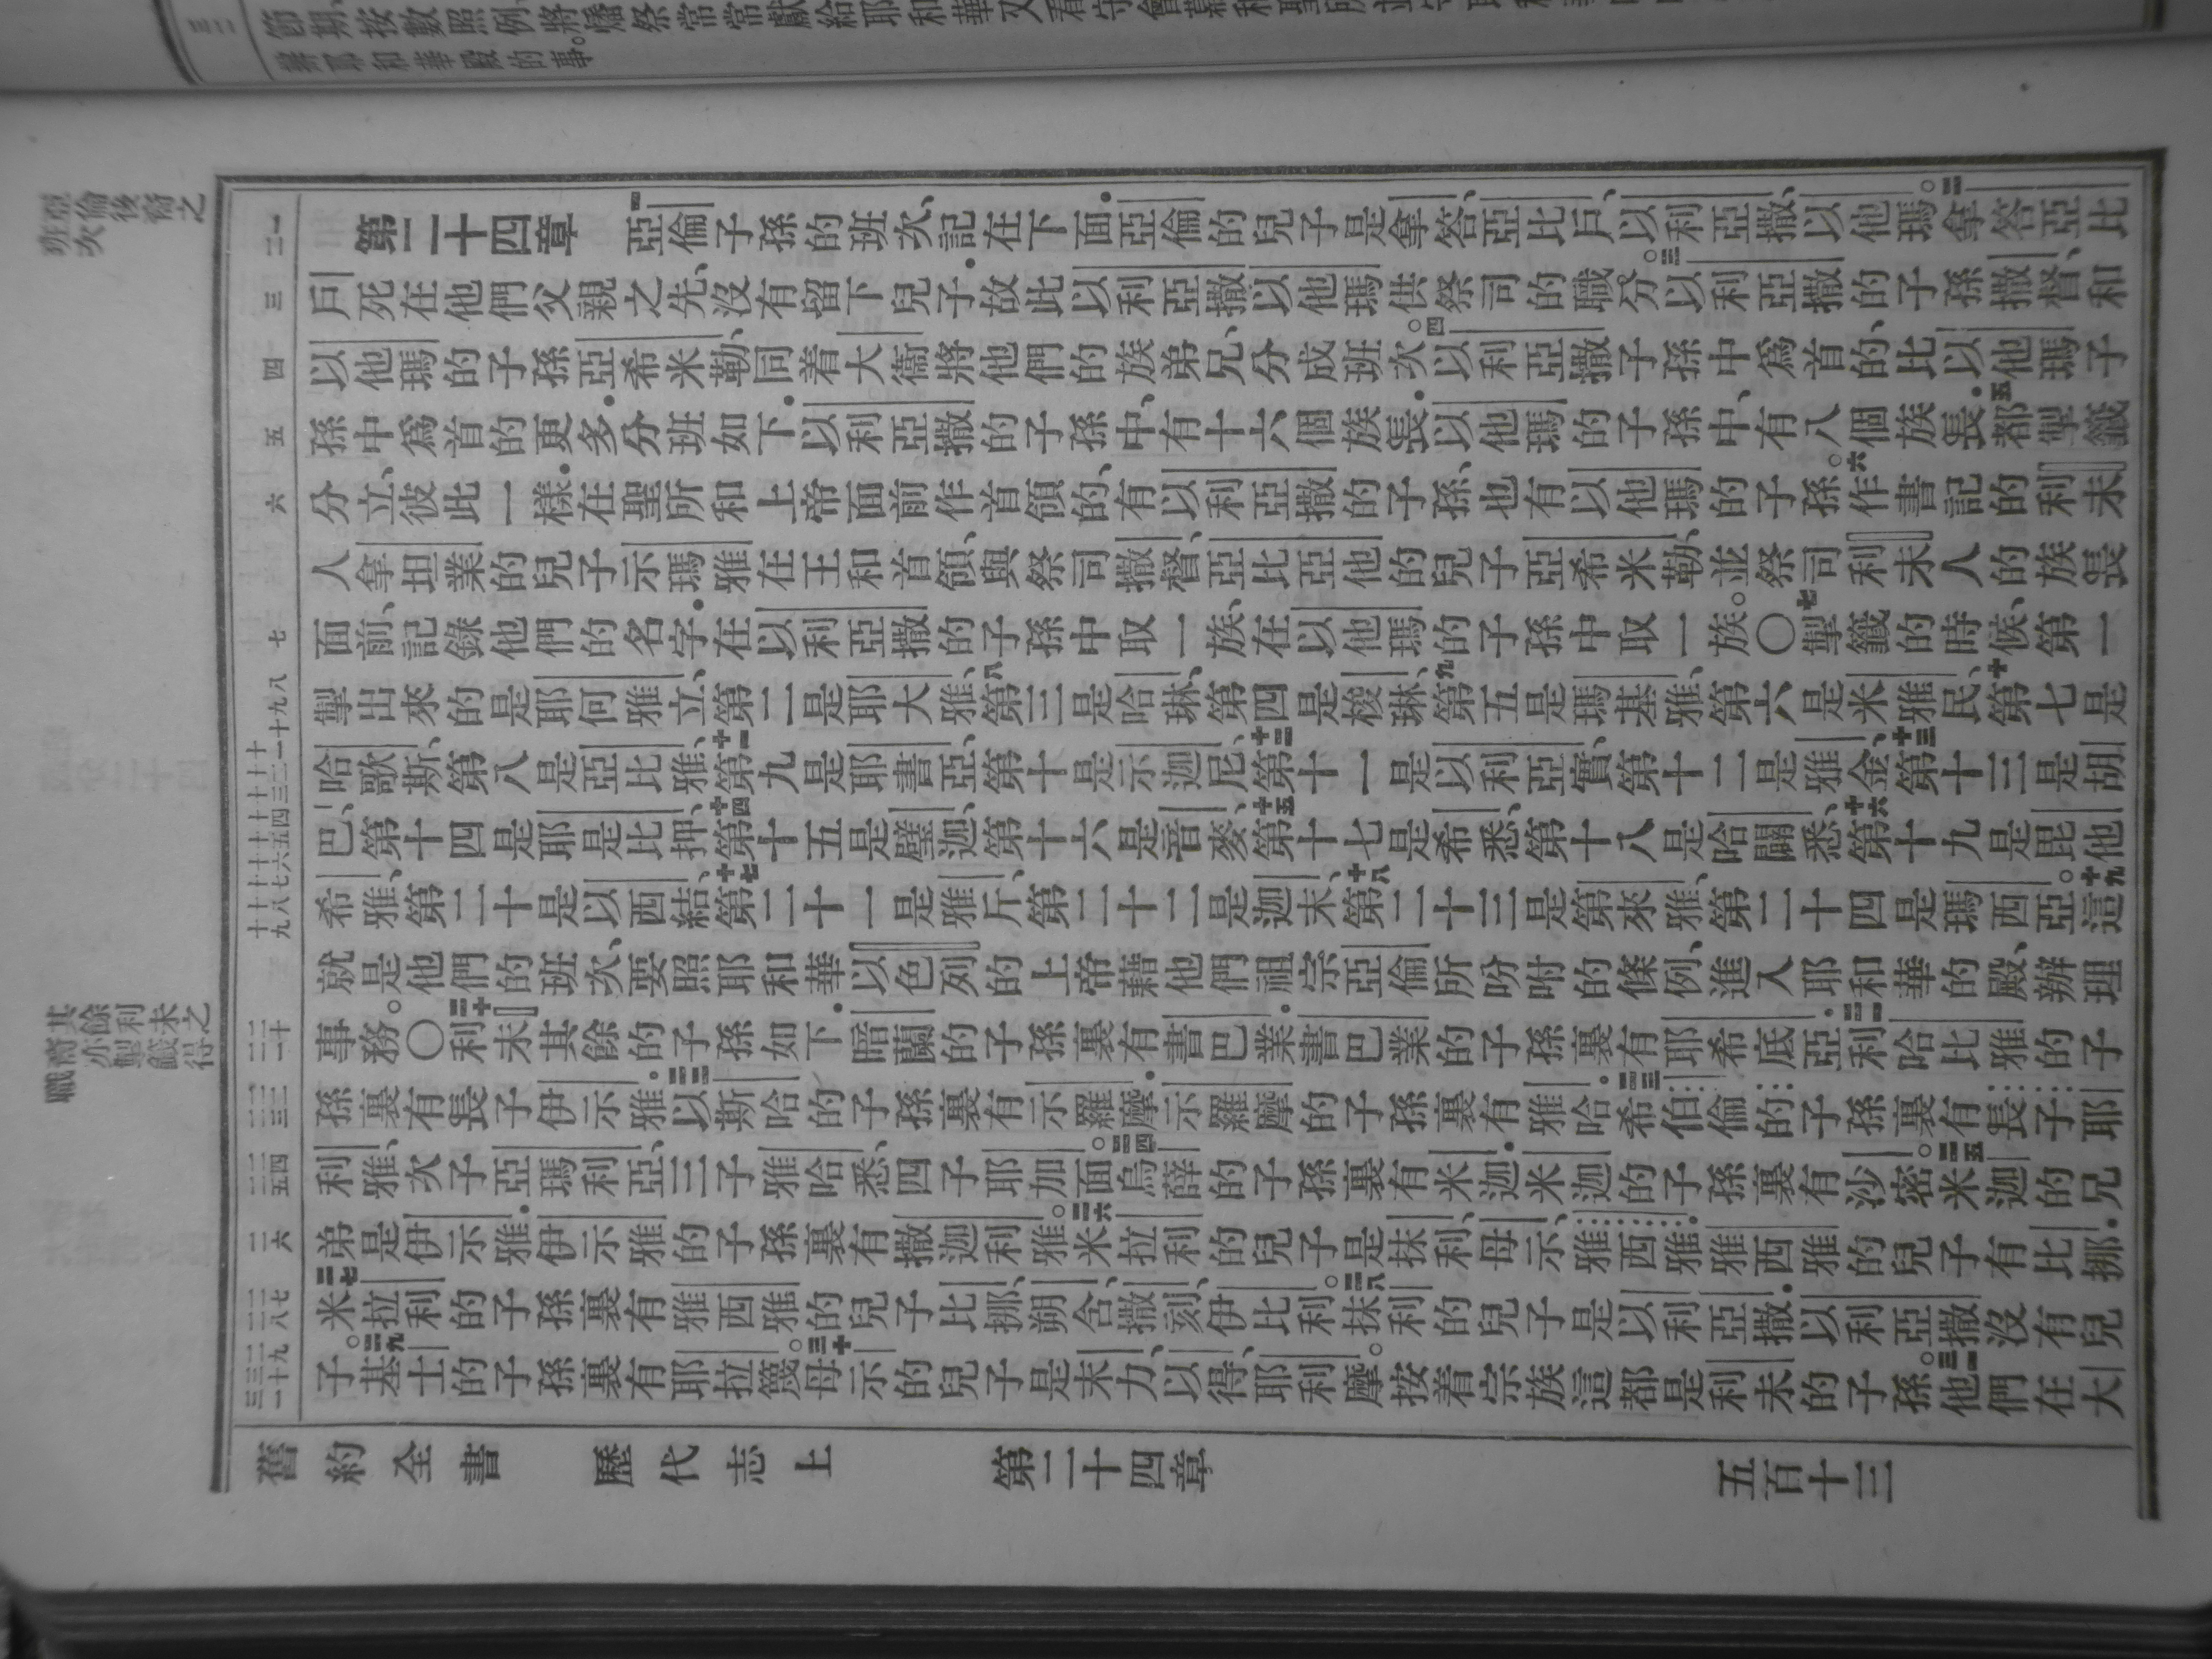 節期、按數照例、將燔祭常常獻給耶和華又看守會幕和聖所
辦耶和華殿的事。
亞倫後裔之
班次
第二十四章 一亞倫子孫的班次、記在下面.亞倫的兒子是拿答、亞比戶、以利亞撒、以他瑪。二拿答亞比
戶死在他們父親之先、沒有留下兒子.故此以利亞撒以他瑪供祭司的職分。三以利亞撒的子孫撒督、和
以他瑪的子孫亞希米勒、同着大衞將他們的族弟兄、分成班次。四以利亞撒子孫中爲首的、比以他瑪子
孫中爲首的更多.分班如下.以利亞撒的子孫中、有十六個族長.以他瑪的子孫中、有八個族長.五都掣籤
分立、彼此一樣.在聖所和上帝面前作首領的、有以利亞撒的子孫、也有以他瑪的子孫。六作書記的利未
人拿坦業的兒子示瑪雅、在王和首領、與祭司撒督、亞比亞他的兒子亞希米勒、並祭司利未人的族長
面前、記錄他們的名字.在以利亞撒的子孫中取一族、在以他瑪的子孫中取一族。〇七掣籤的時候、第一
掣出來的是耶何雅立、第二是耶大雅、八第三是哈琳、第四是梭琳、九第五是瑪基雅、第六是米雅民、十第七是
哈歌斯、第八是亞比雅、十一第九是耶書亞、第十是示迦尼、十二第十一是以利亞實、第十二是雅金、十三第十三是胡
巴、第十四是耶是比押、十四第十五是璧迦、第十六是音麥、十五第十七是希悉、第十八是哈闢悉、十六第十九是毘他
希雅、第二十是以西結、十七第二十一是雅斤、第二十二是迦末、十八第二十三是第來雅、第二十四是瑪西亞。十九這
就是他們的班次、要照耶和華以色列的上帝藉他們祖宗亞倫所吩咐的條例、進入耶和華的殿、辦理
事務。〇二十利未其餘的子孫如下.暗蘭的子孫裏有書巴業.書巴業的子孫裏有耶希底亞.二一利哈比雅的子
孫裏有長子伊示雅。二二以斯哈的子孫裏有示羅摩.示羅摩的子孫裏有雅哈.二三希伯倫的子孫裏有長子耶
利雅、次子亞瑪利亞、三子雅哈悉、四子耶加面。二四烏薛的子孫裏有米迦.米迦的子孫裏有沙密。二五米迦的兄
弟是伊示雅.伊示雅的子孫裏有撒迦利雅。二六米拉利的兒子是抹利、母示、雅西雅.雅西雅的兒子有比挪.
二七米拉利的子孫裏有雅西雅的兒子比挪、朔含、撒刻、伊比利。二八抹利的兒子是以利亞撒.以利亞撒沒有兒
子。二九基士的子孫裏有耶拉篾。三十母示的兒子是末力、以得、耶利摩。按着宗族這都是利未的子孫。三一他們在大
其餘利未之
裔亦掣籤得
職
舊約全書 歷代志上 第二十四章 五百十三